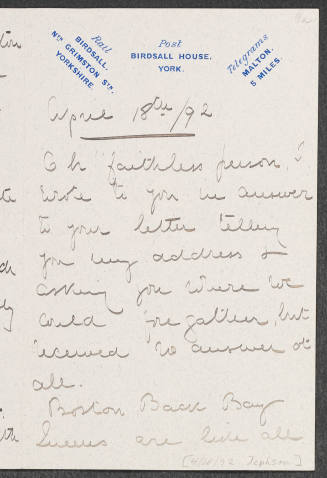 Rail
BIRDSALL.
Nth GRIMSTON Stn.
YORKSHIRE.
Post
BIRDSALL HOUSE,
YORK.
Telegrams
MALTON.
5 MILES.
April 18th/92
Oh faithless person, I
wrote to you in answer
to your letter telling
you my address &
asking you where we
could foregather, but
received no answer at
all.
Boston Back Bay
are like all
[4/18/92 Jephson]